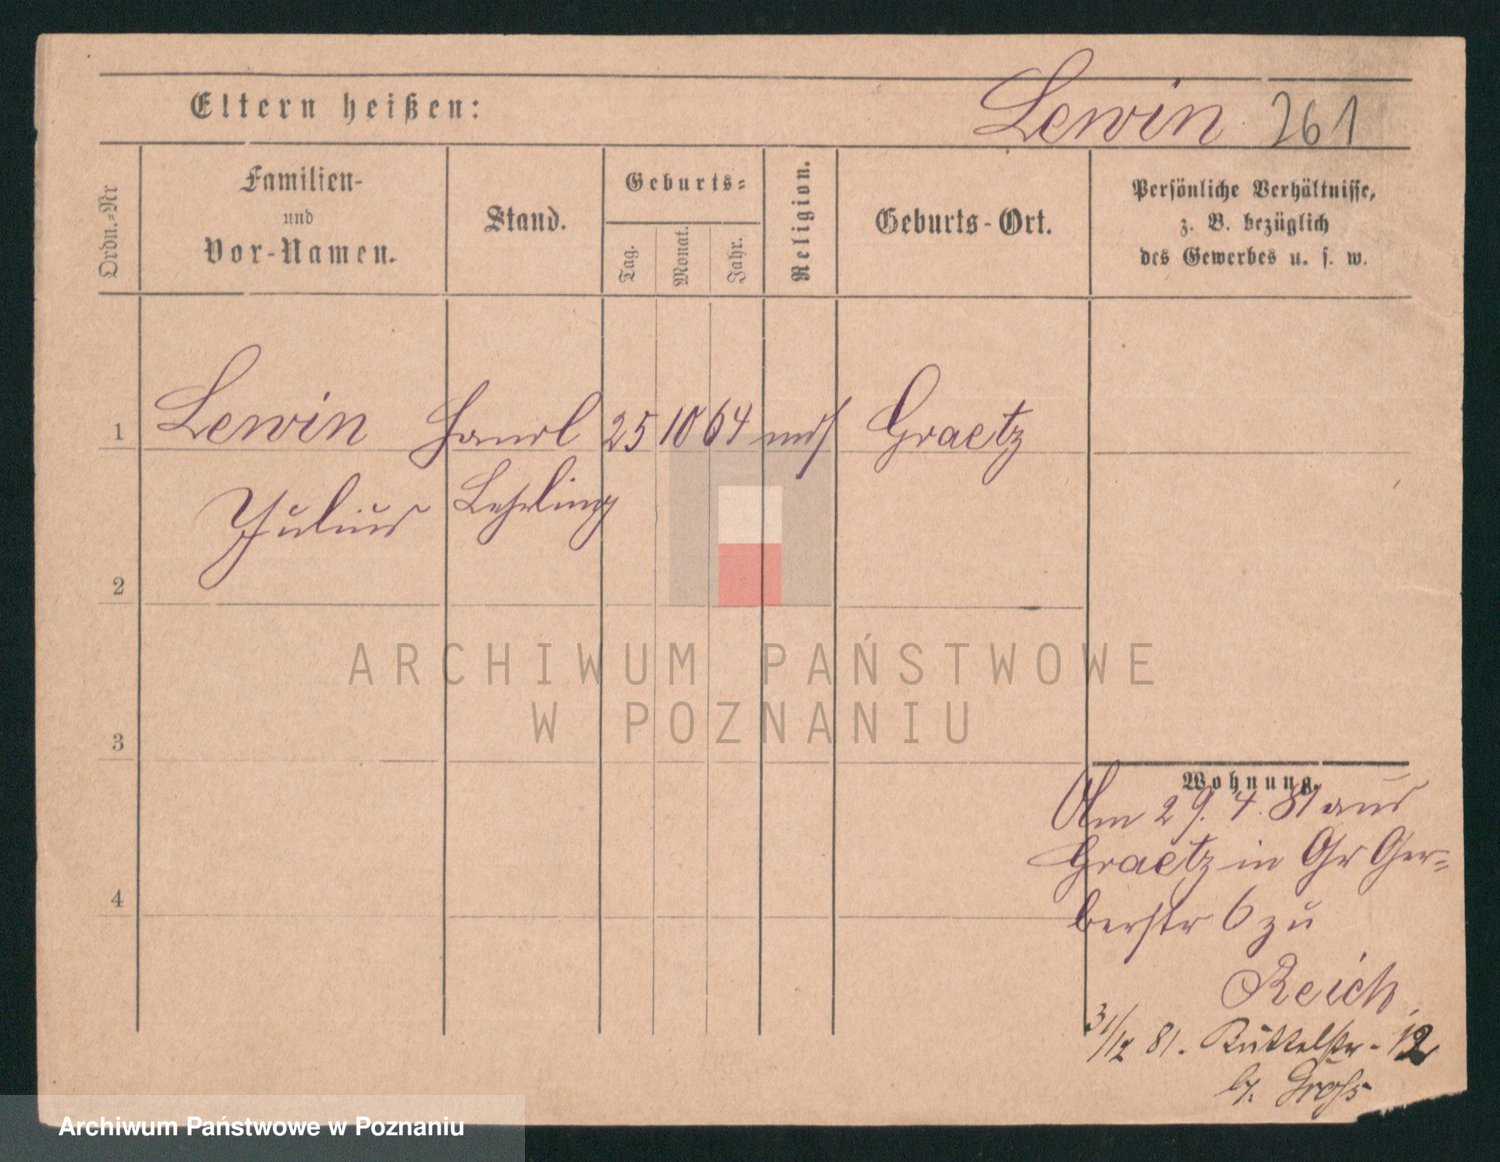 Eltern heißen:
Lewin 261
Ordn.-Nr
Familien-
und
Vor-Namen.
Stand.
Geburts-
Tag.
Monat.
Jahr.
Religion.
Geburts-Ort.
Persönliche Verhältnisse,
z. B. bezüglich
des Gewerbes u. s. w.
1 Lewin Handl 25 10 64 mos Graetz
Julius Lehrling
2
ARCHIWUM PAŃSTWOWE
W POZNANIU
3
Wohnung.
Am 29. 4. 81 aus
Graetz in Gr Ger-
4
berstr 6 zu
Reich
31/12 81. Büttelstr. 12
b. Groß
Archiwum Państwowe w Poznaniu